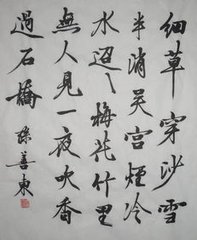 细草穿沙雪
半消吴宫烟冷
水迢迢梅花竹里
無人见一夜吹香
過石橋 孫善東